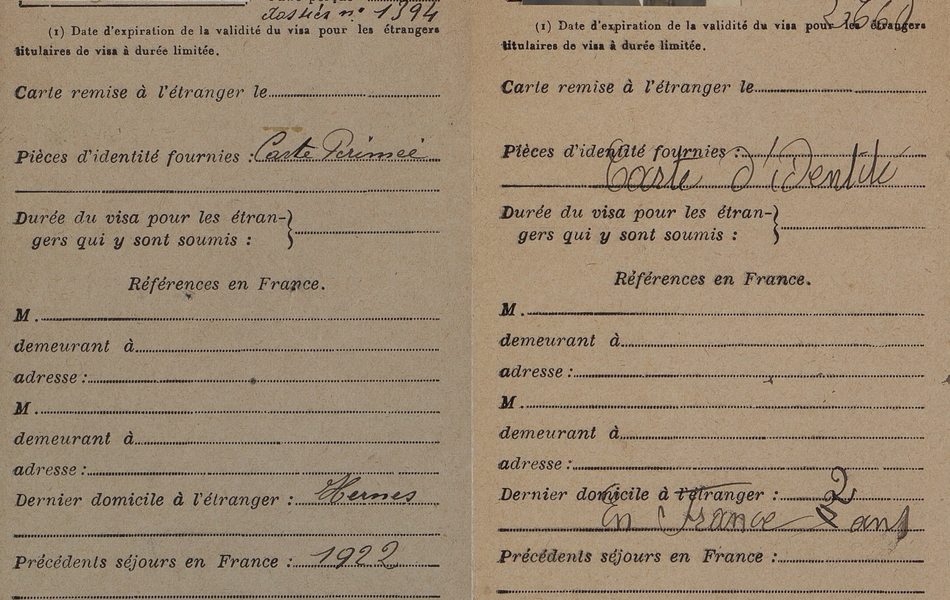 dossier n° 1394
(1) Date d'expiration de la validité du visa pour les étrangers
titulaires de visa à durée limitée.
Carte remise à l'étranger le
Pièces d'identité fournies : Carte Périmée
Durée du visa pour les étran-
gers qui y sont soumis :
Références en France.
M.
demeurant à
adresse :
M.
demeurant à
adresse :
Dernier domicile à l'étranger : Hernes
Précédents séjours en France : 1922
(1) Date d'expiration de la validité du visa pour les étrangers
titulaires de visa à durée limitée.
Carte remise à l'étranger le
Pièces d'identité fournies :
Carte d'identité
Durée du visa pour les étran-
gers qui y sont soumis :
Références en France.
M.
demeurant à
adresse :
M.
demeurant à
adresse :
Dernier domicile à l'étranger : 2
En France ans
Précédents séjours en France :